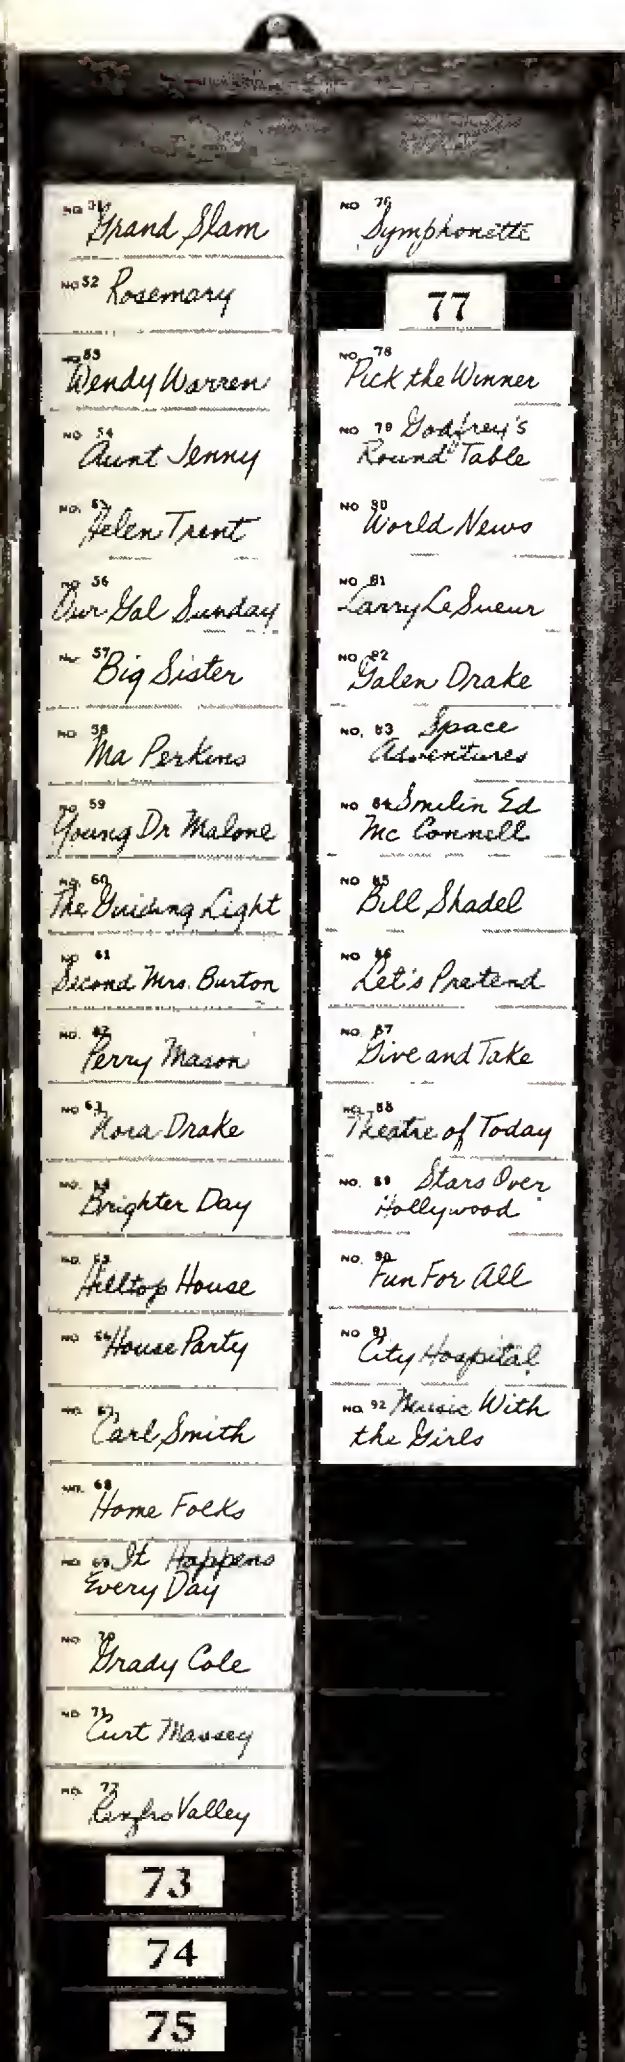 NO. 51 Grand Slam
NO 52 Rosemary
NO 53
Wendy Warren
NO. 54
Aunt Jenny
NO. 55
Helen Trent
NO. 56
Our Gal Sunday
No. 57 Big Sister
NO. 58
Ma Perkins
NO. 59
Young Dr Malone
NO. 60
The Guiding Light
NO. 61
Second Mrs. Burton
NO. 62
Perry Mason
NO 63
Nora Drake
NO. 64
Brighter Day
NO. 65
Hilltop House
NO. 66 House Party
NO. 67
Carl Smith
NO. 68
Home Folks
NO. 69 It Happens
Every Day
NO. 70
Grady Cole
NO. 71
Curt Massey
NO. 72
Renfro Valley
73
74
75
NO 76
Symphonette
77
NO. 78
Pick the Winner
NO 79 Godfrey's
Round Table
NO 80
World News
NO. 81
Larry LeSueur
NO. 82
Galen Drake
NO. 83 Space
Adventures
NO 84 Smilin Ed
Mc Connell
NO 85
Bill Shadel
NO 86
Let's Pretend
NO. 87
Give and Take
NO. 88
Theatre of Today
NO. 89 Stars Over
Hollywood
NO. 90
Fun For All
NO 91
City Hospital
NO. 92 Music With
the Girls